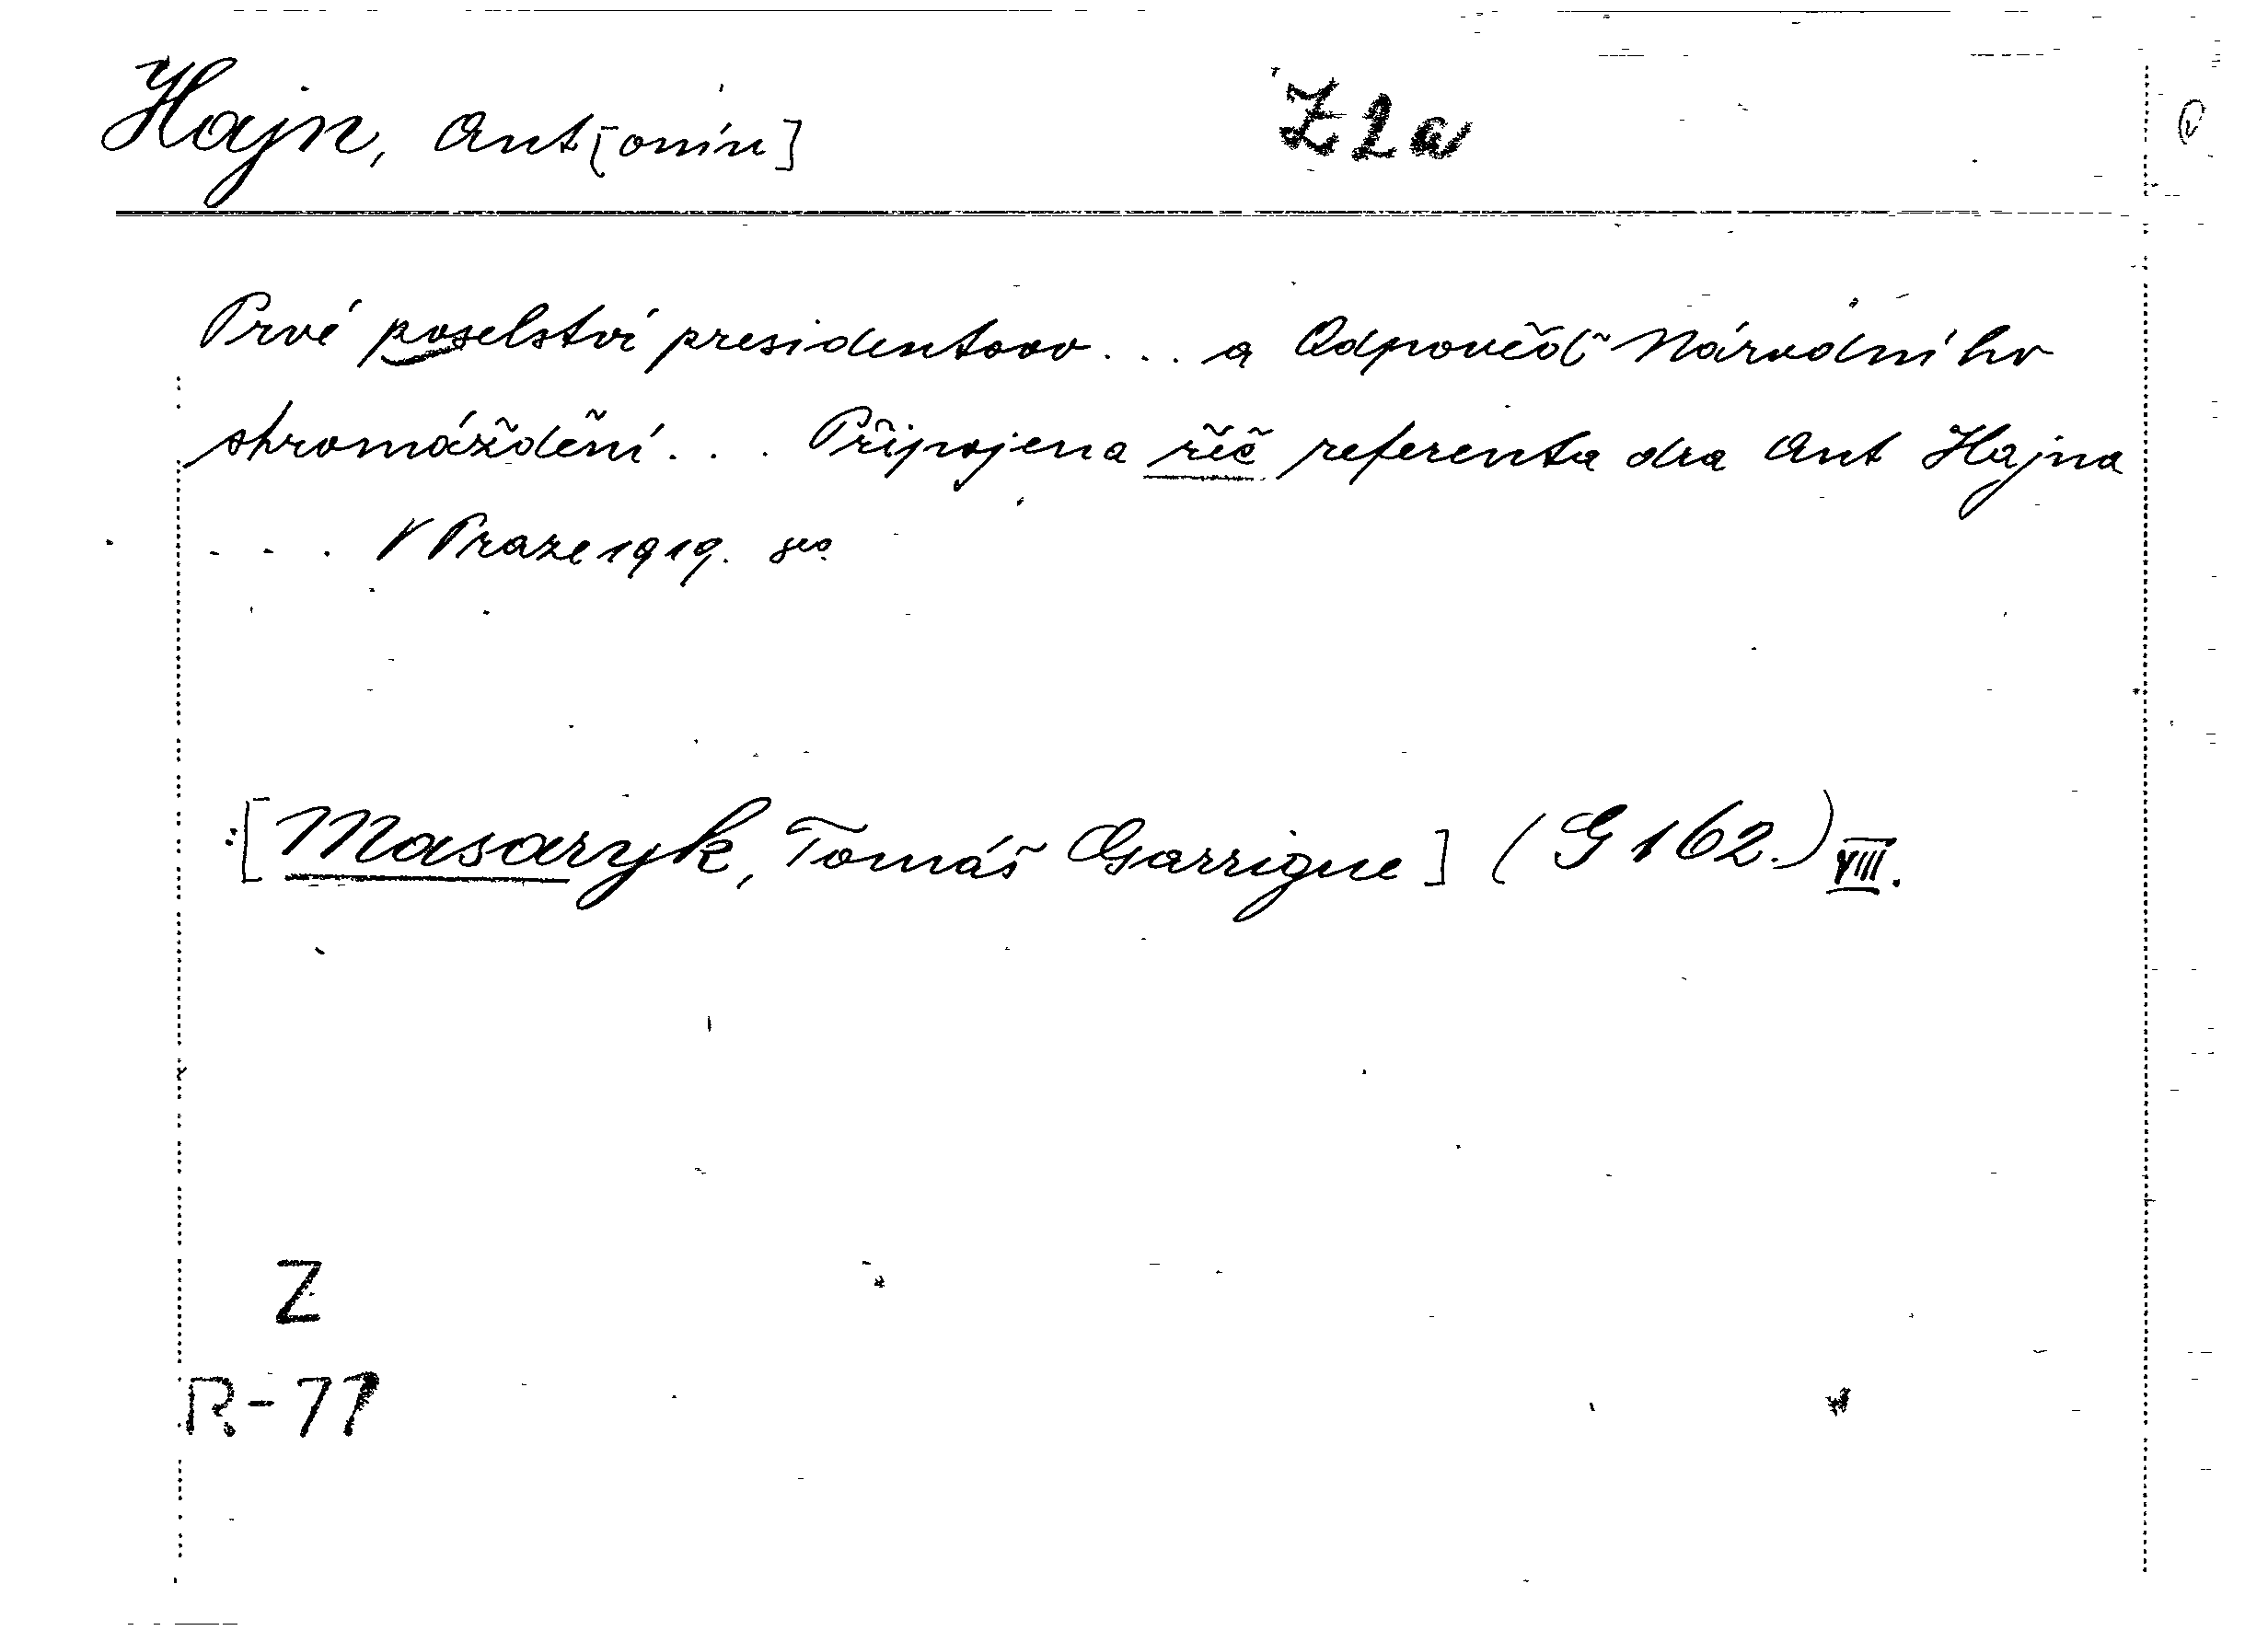 Hajn, Ant[onín] Z 2 a
Prvé poselství presidentovo... a Odpověď Národního
shromáždění... Připojena řeč referenta dra Ant Hajna
... V Praze 1919.
:[Masaryk, Tomáš Garrigue] (G 162.) VIII.
Z
R-77